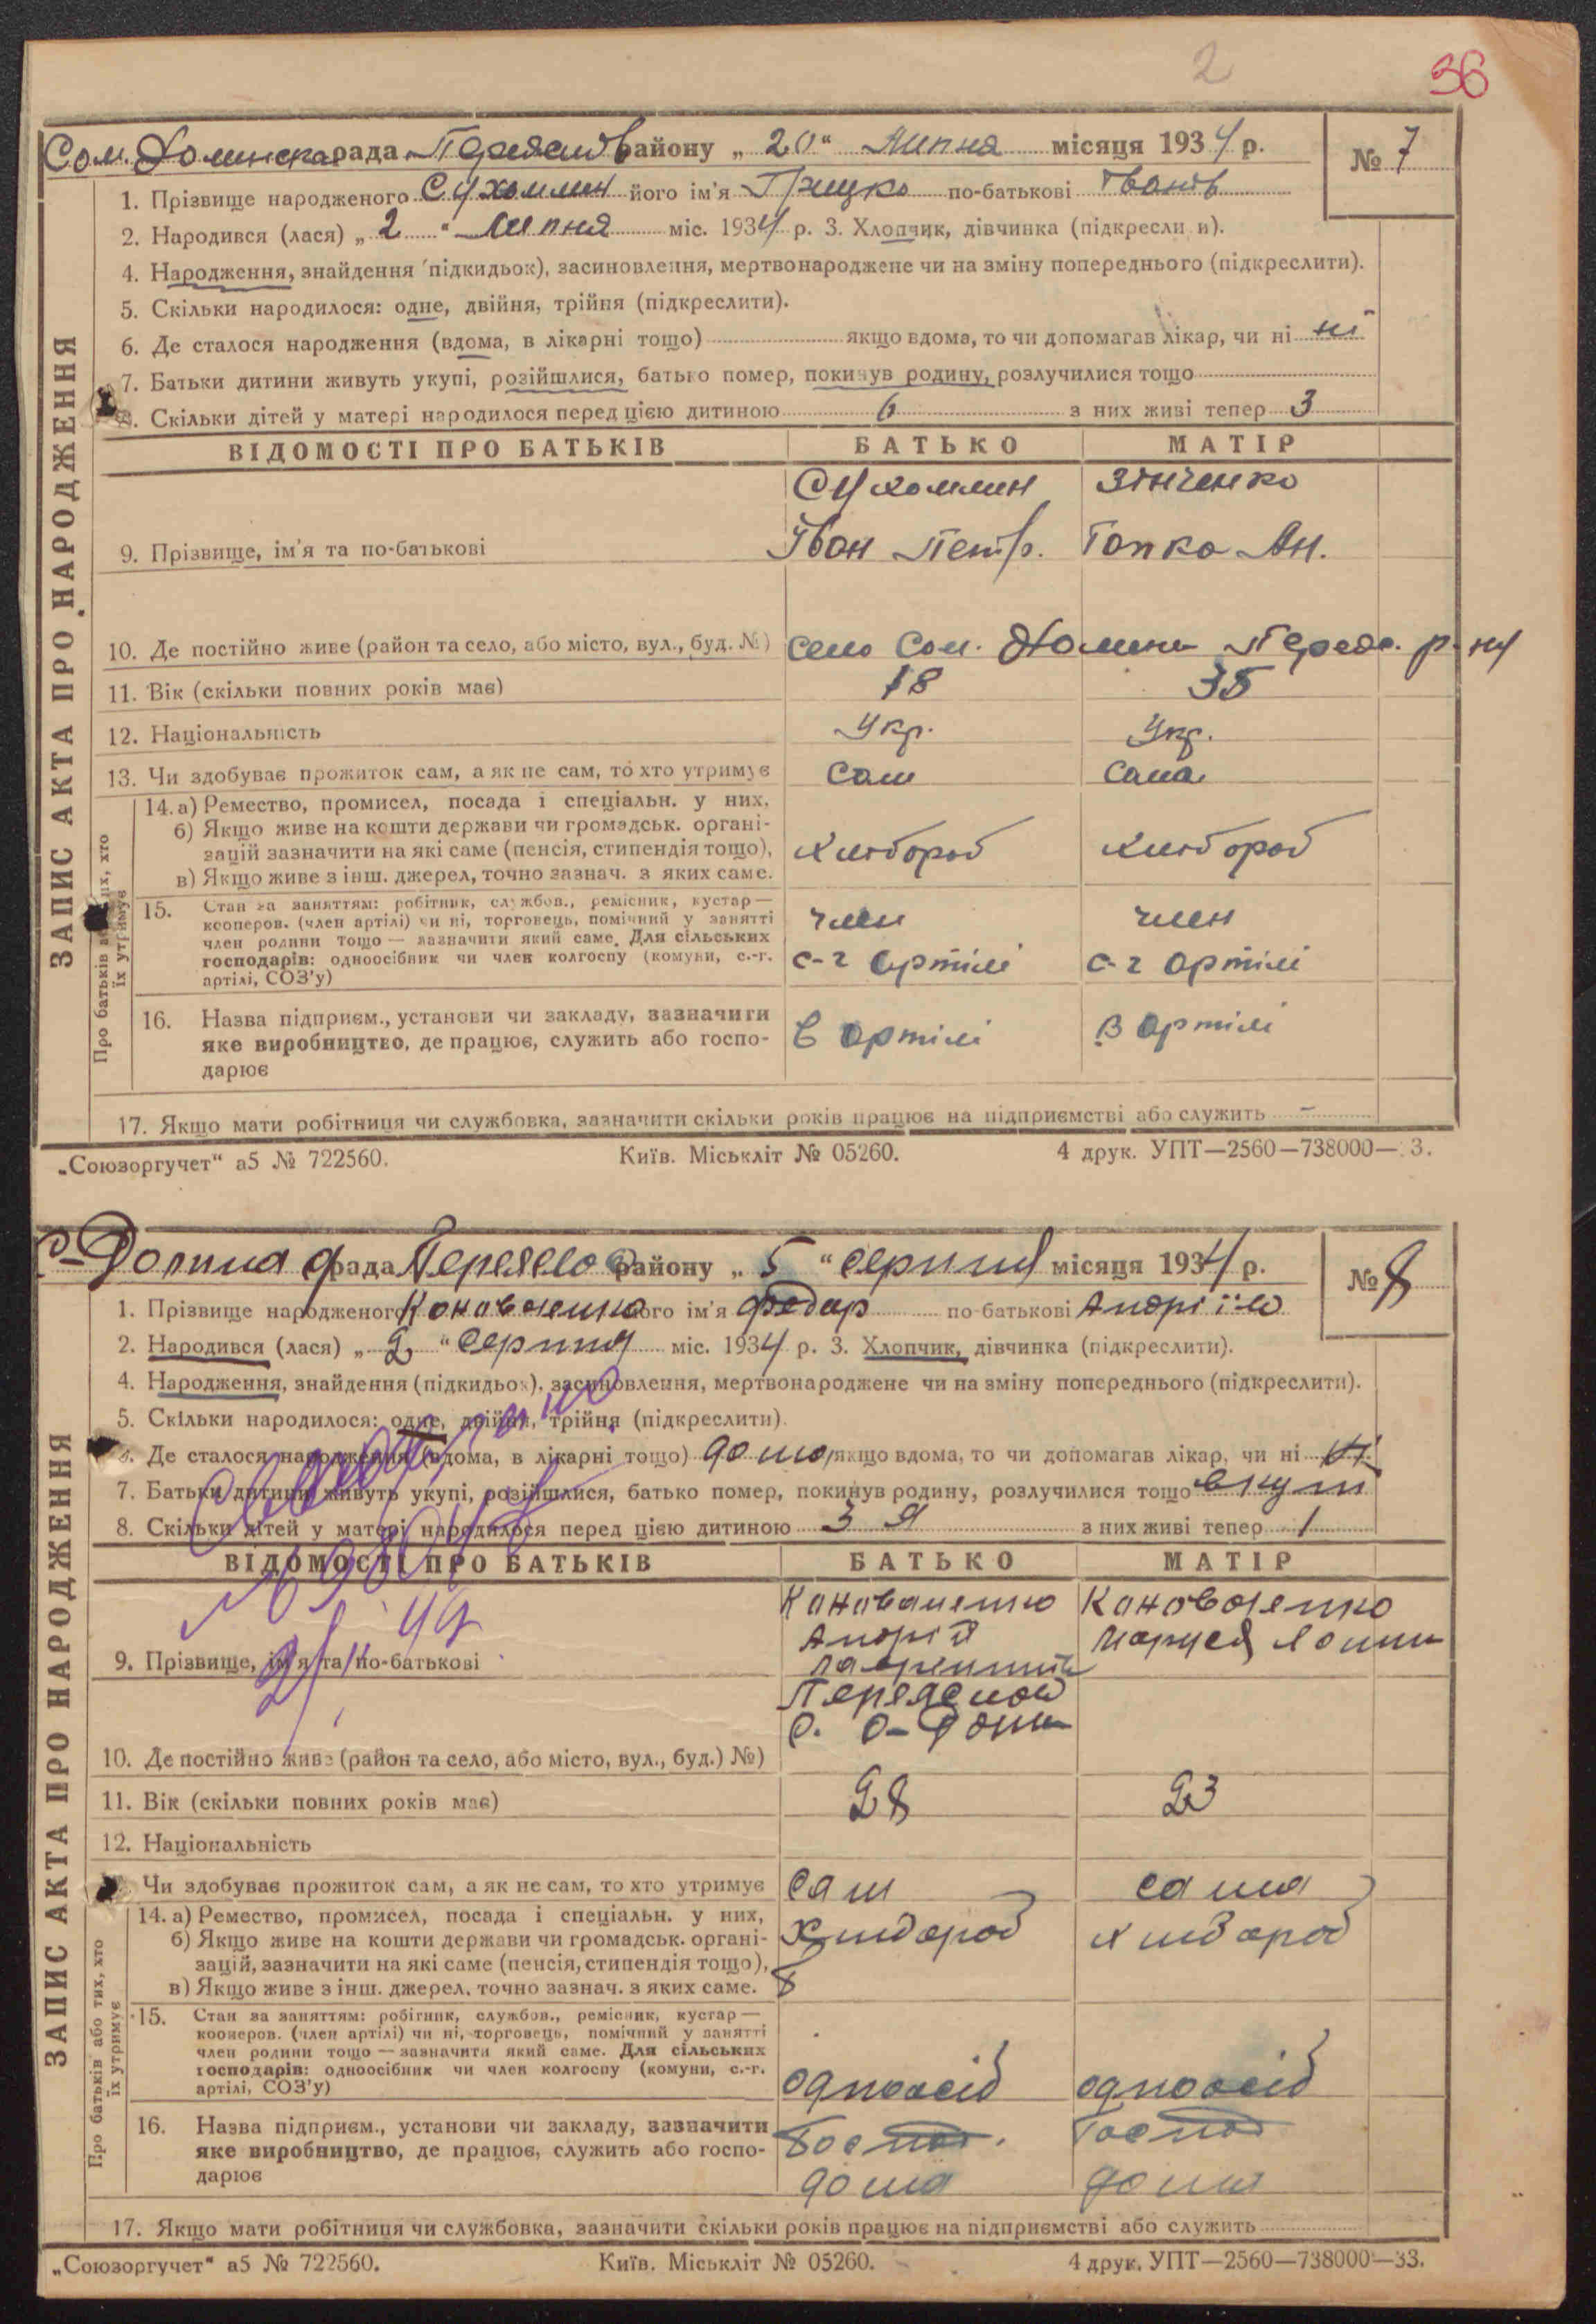 2
36
ЗАПИС АКТА ПРО НАРОДЖЕННЯ
Сом. Долинска рада Переяслів району „ 20 “ Липня місяця 1934 р.
№ 7
1. Прізвище народженого Сухомлин його ім'я Грицко по-батькові Іванів
2. Народився (лася) „ 2 “ Липня міс. 1934 р. 3. Хлопчик, дівчинка (підкреслити).
4. Народження, знайдення (підкидьок), засиновлення, мертвонароджене чи на зміну попереднього (підкреслити).
5. Скільки народилося: одне, двійня, трійня (підкреслити).
6. Де сталося народження (вдома, в лікарні тощо) якщо вдома, то чи допомагав лікар, чи ні ні
7. Батьки дитини живуть укупі, розійшлися, батько помер, покинув родину, розлучилися тощо
8. Скільки дітей у матері народилося перед цією дитиною 6 з них живі тепер 3
ВІДОМОСТІ ПРО БАТЬКІВ БАТЬКО МАТІР
Сухомлин Зінченко
9. Прізвище, ім'я та по-батькові Іван Петр. Гапка Ан.
10. Де постійно живе (район та село, або місто, вул., буд. №) село Сом. Долина Переяс. р-ну
11. Вік (скільки повних років має) 18 35
12. Національність Укр. Укр.
13. Чи здобуває прожиток сам, а як не сам, то хто утримує Сам Сама
Про батьків або тих, хто їх утримує
14. а) Ремество, промисел, посада і спеціальн. у них,
б) Якщо живе на кошти держави чи громадськ. органі-
зацій зазначити на які саме (пенсія, стипендія тощо), Хлібороб Хлібороб
в) Якщо живе з інш. джерел, точно зазнач. з яких саме.
15. Стан за заняттям: робітник, службов., ремісник, кустар —
кооперов. (член артілі) чи ні, торговець, помічний у занятті член член
член родини тощо — зазначити який саме. Для сільських
господарів: одноосібник чи член колгоспу (комуни, с.-г. с-г артілі с-г артілі
артілі, СОЗ'у)
16. Назва підприєм., установи чи закладу, зазначити
яке виробництво, де працює, служить або госпо- в артілі в артілі
дарює
17. Якщо мати робітниця чи службовка, зазначити скільки років працює на підприємстві або служить -
„Союзоргучет“ а5 № 722560. Київ. Міськліт № 05260. 4 друк. УПТ—2560—738000—33.
ЗАПИС АКТА ПРО НАРОДЖЕННЯ
с-Долина рада Переяслов району „ 5 “ серпня місяця 1934 р.
№ 8
1. Прізвище народженого Коноваленко його ім'я Федар по-батькові Андріїв
2. Народився (лася) „ 2 “ серпня міс. 1934 р. 3. Хлопчик, дівчинка (підкреслити).
4. Народження, знайдення (підкидьок), засиновлення, мертвонароджене чи на зміну попереднього (підкреслити).
5. Скільки народилося: одне, двійня, трійня (підкреслити).
6. Де сталося народження (вдома, в лікарні тощо) дома якщо вдома, то чи допомагав лікар, чи ні ні
7. Батьки дитини живуть укупі, розійшлися, батько помер, покинув родину, розлучилися тощо вкупі
8. Скільки дітей у матері народилося перед цією дитиною 3 я з них живі тепер 1
ВІДОМОСТІ ПРО БАТЬКІВ БАТЬКО МАТІР
Коноваленко Коноваленко
Андрій Маруся
9. Прізвище, ім'я та по-батькові
Переяслов
с. с-Долин
10. Де постійно живе (район та село, або місто, вул., буд.) №)
11. Вік (скільки повних років має) 28 23
12. Національність
Чи здобуває прожиток сам, а як не сам, то хто утримує сам сама
Про батьків або тих, хто їх утримує
14. а) Ремество, промисел, посада і спеціальн. у них,
б) Якщо живе на кошти держави чи громадськ. органі- Хлібороб Хлібороб
зацій, зазначити на які саме (пенсія, стипендія тощо),
в) Якщо живе з інш. джерел, точно зазнач. з яких саме.
15. Стан за заняттям: робітник, службов., ремісник, кустар —
кооперов. (член артілі) чи ні, торговець, помічний у занятті
член родини тощо — зазначити який саме. Для сільських
господарів: одноосібник чи член колгоспу (комуни, с.-г.
артілі, СОЗ'у) одноосіб одноосіб
16. Назва підприєм., установи чи закладу, зазначити
яке виробництво, де працює, служить або госпо- Госпо Госпо
дарює дома дома
17. Якщо мати робітниця чи службовка, зазначити скільки років працює на підприємстві або служить
„Союзоргучет“ а5 № 722560. Київ. Міськліт № 05260. 4 друк. УПТ—2560—738000—33.